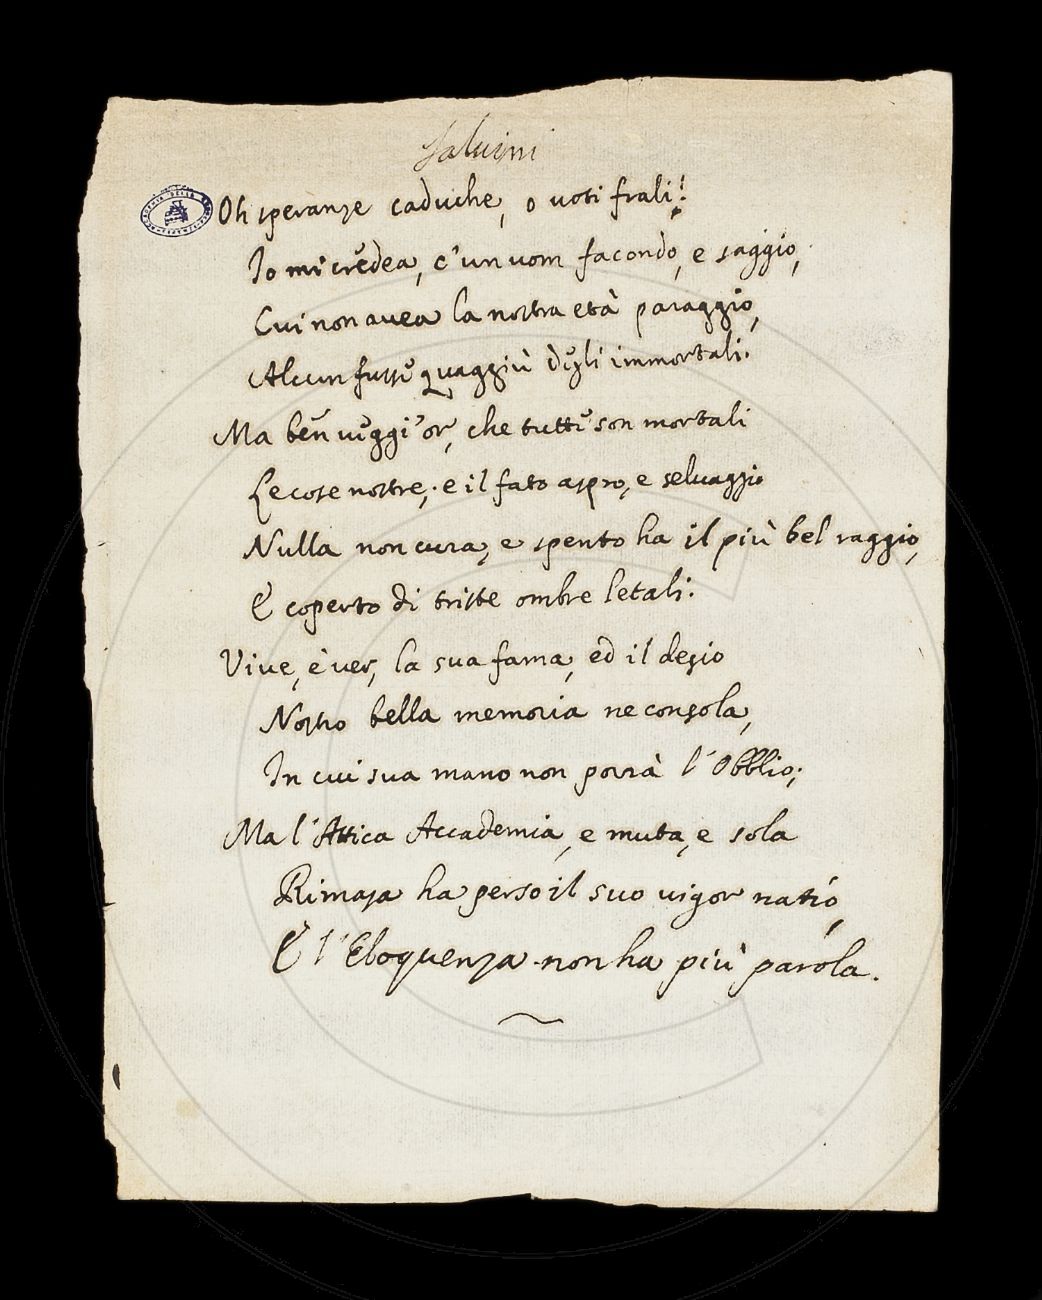 Salvini
Oh speranze caduche, o voti frali!
Io mi credea, c'un uom facondo, e saggio,
Cui non avea la nostra età paraggio,
Alcun fusse quaggiù degli immortali.
Ma ben veggi'or, che tutte son mortali
Le cose nostre; e il fato aspro, e selvaggio
Nulla non cura, e spento ha il più bel raggio,
E coperto di triste ombre letali.
Vive, è ver, la sua fama, ed il desio
Nostro bella memoria ne consola,
In cui sua mano non porrà l'Obblio;
Ma l'Attica Accademia, e muta, e sola
Rimasa ha perso il suo vigor natio,
E l'Eloquenza non ha più parola.